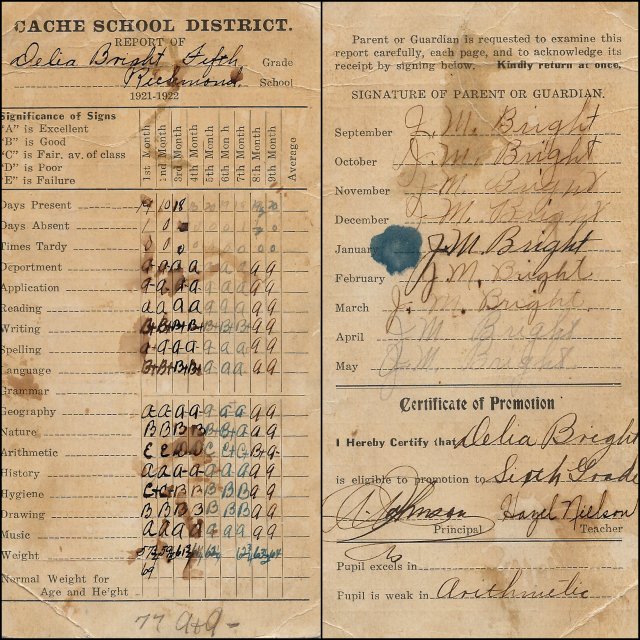 CACHE SCHOOL DISTRICT.
REPORT OF
Delia Bright Fifth Grade
Richmond School
1921-1922
Significance of Signs
"A" is Excellent
"B" is Good
"C" is Fair, av. of class
"D" is Poor
"E" is Failure
1st Month
2nd Month
3rd Month
4th Month
5th Month
6th Month
7th Month
8th Month
9th Month
Average
Days Present 19 10 18
Days Absent 1 0
Times Tardy 0 0
Deportment a a a a a a a a a
Application a a a a a a a a a
Reading a a a a a a a a a
Writing B+ B+ B+ B+ B+ B+ B+ a a
Spelling a a a a a a a a a
Language B+ B+ B+ B+ a a a a a
Grammar
Geography a a a a a a a a a
Nature B B B B a a
Arithmetic
History a a a a a a a a a
Hygiene C+ B B B a a
Drawing B B B B B B a a
Music a a a a a a a a a
Weight
69
Normal Weight for
Age and He'ght
77
Parent or Guardian is requested to examine this
report carefully, each page, and to acknowledge its
receipt by signing below. Kindly return at once.
SIGNATURE OF PARENT OR GUARDIAN.
September J. M. Bright
October J. M. Bright
November J. M. Bright
December J. M. Bright
January J M Bright
February J M. Bright
March J. M. Bright
April J M Bright
May J. M. Bright
Certificate of Promotion
I Hereby Certify that Delia Bright
is eligible to promotion to Sixth Grade
Johnson Hazel Nielson
Principal Teacher
Pupil excels in
Pupil is weak in Arithmetic